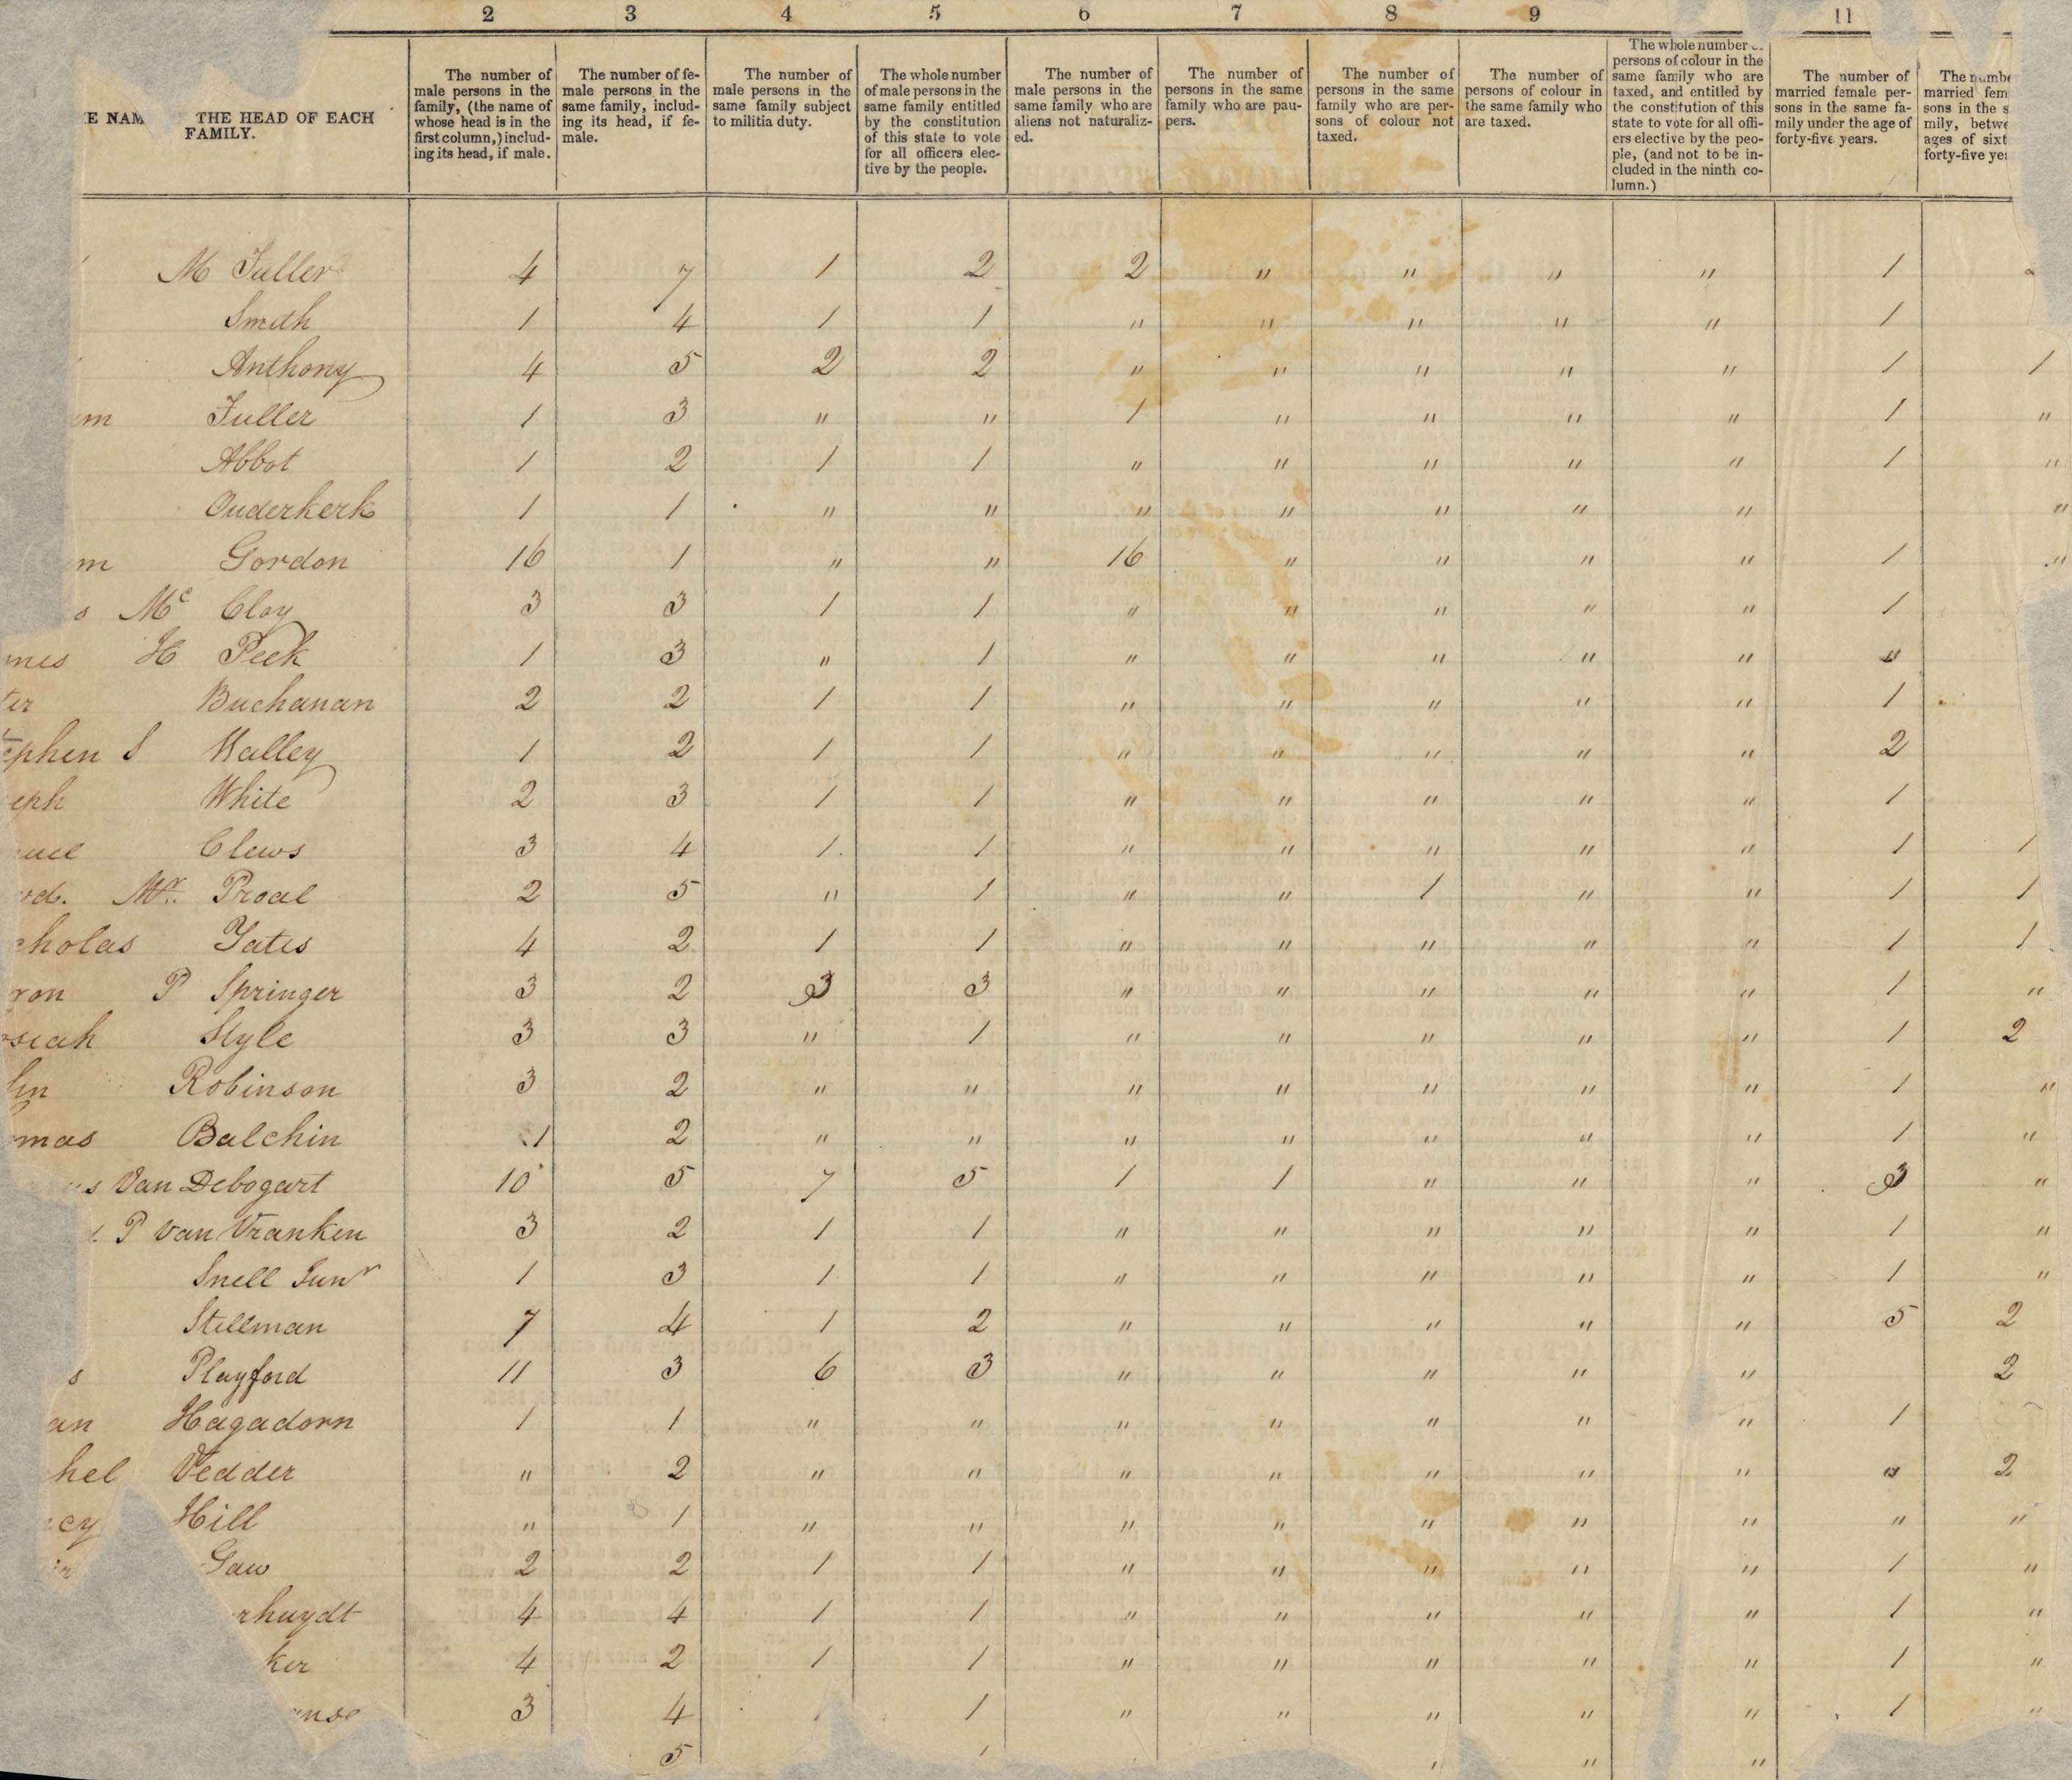 2 3 4 5 6 7 8 9 11
THE HEAD OF EACH FAMILY.
The number of male persons in the family, (the name of whose head is in the first column,) including its head, if male.
The number of female persons in the same family, including its head, if female.
The number of male persons in the same family subject to militia duty.
The whole number of male persons in the same family entitled by the constitution of this state to vote for all officers elective by the people.
The number of male persons in the same family who are aliens not naturalized.
The number of persons in the same family who are paupers.
The number of persons in the same family who are persons of colour not taxed.
The number of persons of colour in the same family who are taxed.
The whole number persons of colour in the same family who are taxed, and entitled by the constitution of this state to vote for all officers elective by the people, (and not to be included in the ninth column.)
The number of married female persons in the same family under the age of forty-five years.
The married sons in the mily, ages of forty-five
M Fuller 4 7 1 2 2 " " " " 1
Smith 1 4 1 1 " " " " " 1
Anthony 4 5 2 2 " " " " " 1 1
Fuller 1 3 " " 1 " " " " 1 "
Abbot 1 2 1 1 " " " " " 1 "
Ouderkerk 1 1 " " " " " " " "
Gordon 16 1 " " 16 " " " " 1 "
Mc Cloy 3 3 1 1 " " " " " 1
H Peek 1 3 " 1 " " " " " "
Buchanan 2 2 1 1 " " " " " 1
S Walley 1 2 1 1 " " " " " 2
White 2 3 1 1 " " " " " 1
Clews 3 4 1 1 " " " " " 1 1
Mr. Proal 2 5 " 1 " " 1 " " 1 1
Yates 4 2 1 1 " " " " " 1 1
P Springer 3 2 3 3 " " " " " 1 "
Slyle 3 3 " 1 " " " " " 1 2
Robinson 3 2 " " " " " " " 1 "
Balchin 1 2 " " " " " " " 1 "
Van Debogart 10 5 7 5 1 1 " " " 3 "
P Van Vranken 3 2 1 1 " " " " " 1 "
Snell Junr 1 3 1 1 " " " " " 1 "
Stillman 7 4 1 2 " " " " " 5 2
Playford 11 3 6 3 " " " " " 2
Hagadorn 1 1 " " " " " " " 1
Vedder " 2 " " " " " " " " 2
Hill " 1 " " " " " " " " "
Gaw 2 2 1 1 " " " " " 1 "
rhuydt 4 4 1 1 " " " " " 1 "
ker 4 2 1 1 " " " " " 1 "
3 4 1 " " " " " 1 "
5 " "